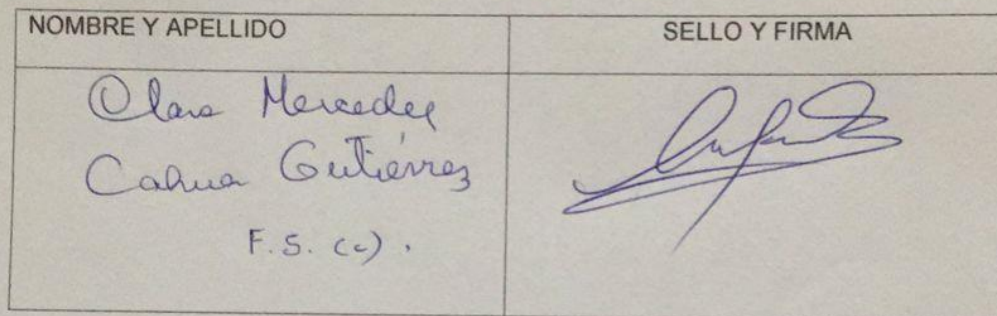 NOMBRE Y APELLIDO SELLO Y FIRMA
Clara Mercedes
Cahua Gutiérrez
F.S. (c).